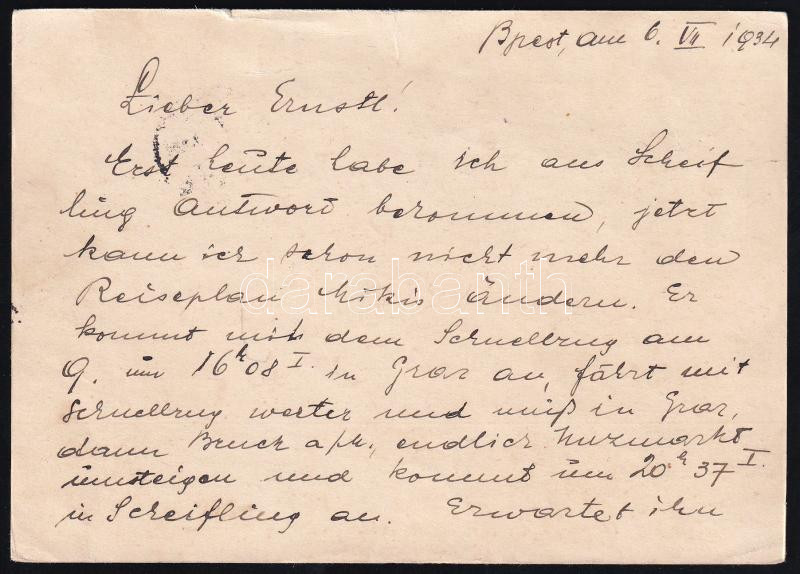 Bpest, am 6. VII 1934
Lieber Ernstl!
Erst heute habe ich aus Scheif
ling Antwort bekommen, jetzt
kann ich schon nicht mehr den
Reiseplan Mikis ändern. Er
kommt mit dem Schnellzug am
9. um 16h 08 I. in Graz an, fährt mit
Schnellzug weiter und muß in Graz,
dann Bruck a/M., endlich Unzmarkt
umsteigen und kommt um 20h 37 I.
in Scheifling an. Erwartet ihn
darabanth